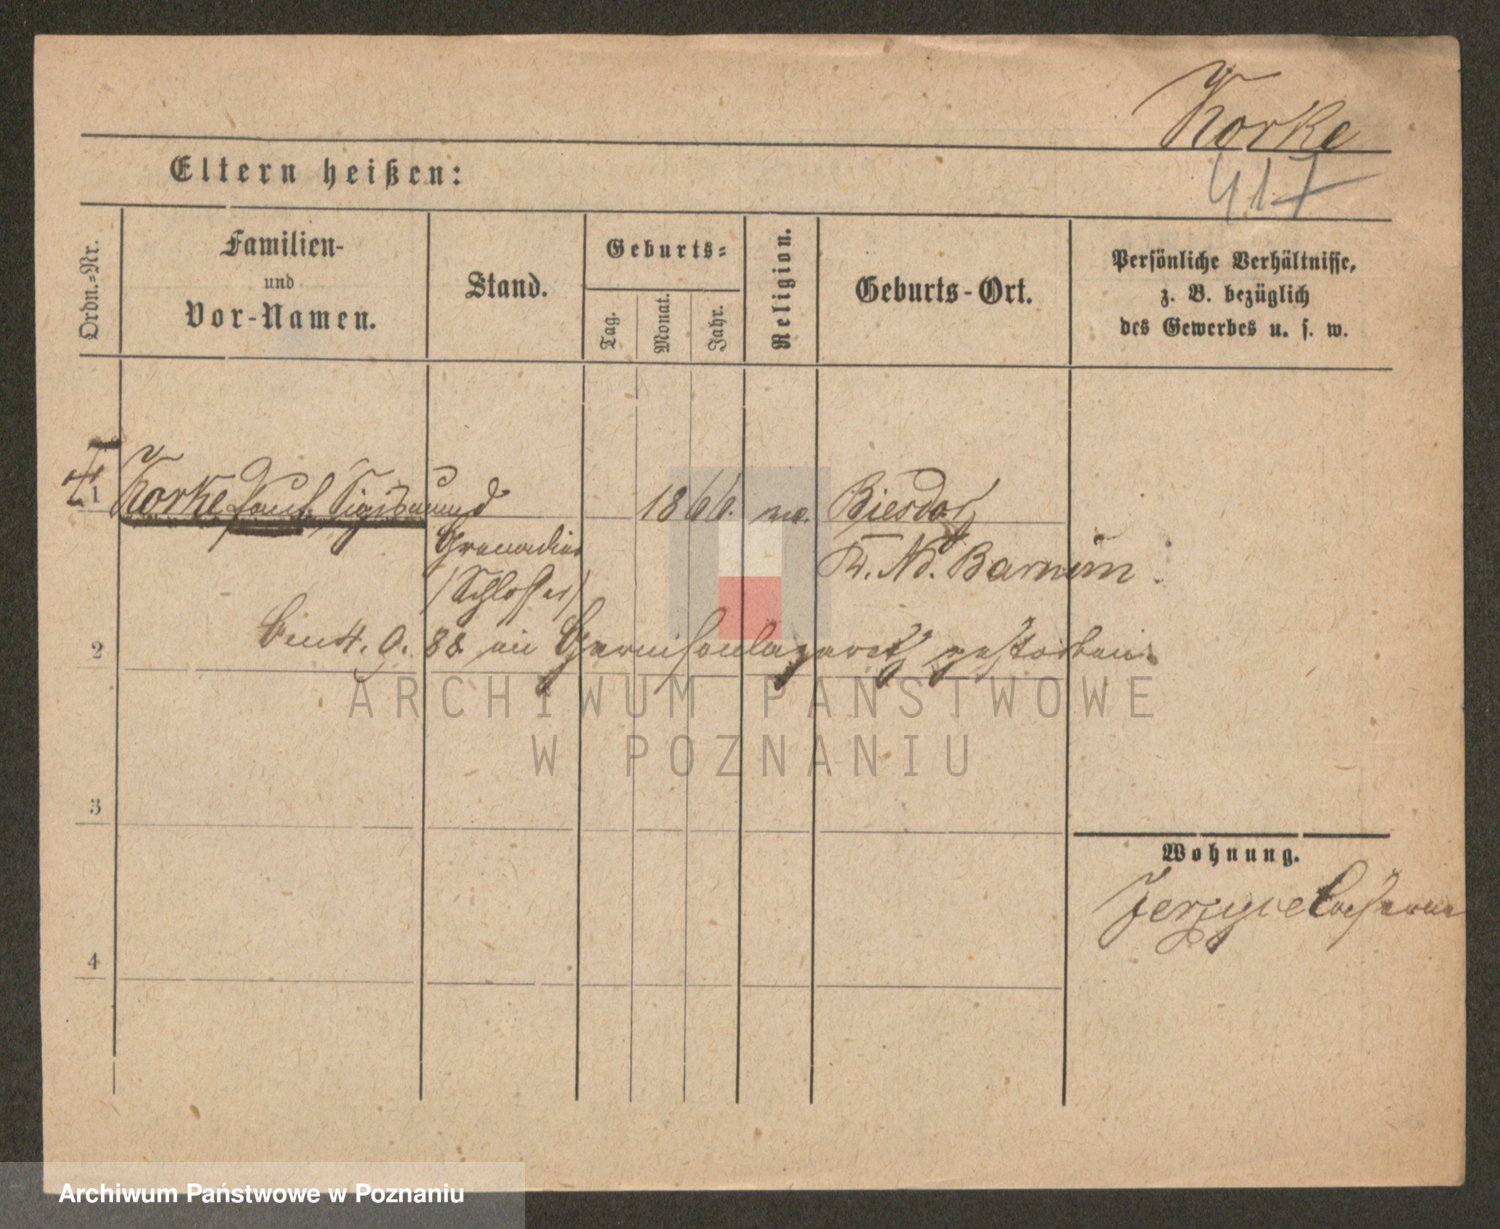 Korke
417
Eltern heißen:
Ordn.-Nr.
Familien-
und
Vor-Namen.
Stand.
Geburts-
Tag.
Monat.
Jahr.
Religion.
Geburts-Ort.
Persönliche Verhältnisse,
z. B. bezüglich
des Gewerbes u. s. w.
1
Korke Paul Sigismund
1866.
Biesdorf
Kr. Nd. Barnim.
Grenadier
(Schlosser)
2
4. 9. 88 im Garnisonlazareth gestorben.
ARCHIWUM PAŃSTWOWE
W POZNANIU
3
Wohnung.
Jerzyce Caserne
4
Archiwum Państwowe w Poznaniu